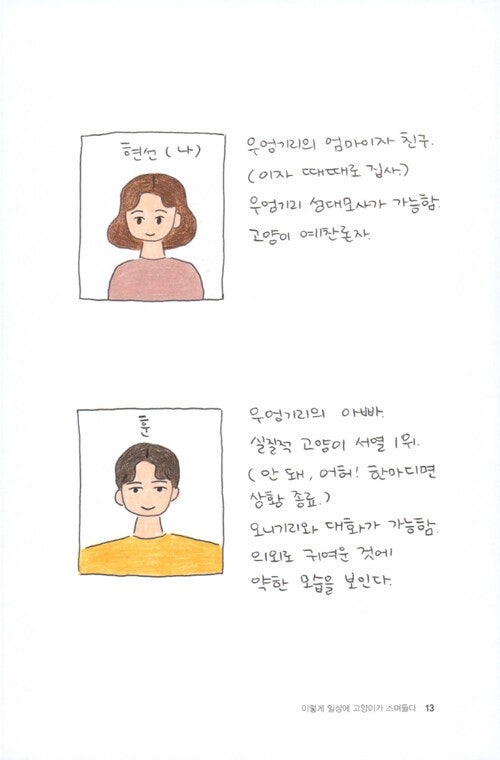 현선 (나)
우엉기리의 엄마이자 친구.
(이자 때때로 집사)
우엉기리 성대모사가 가능함.
고양이 예찬론자.
훈
우엉기리의 아빠.
실질적 고양이 서열 1위.
(안 돼, 어허! 한마디면
상황 종료.)
오니기리와 대화가 가능함.
의외로 귀여운 것에
약한 모습을 보인다.
이렇게 일상에 고양이가 스며들다 13